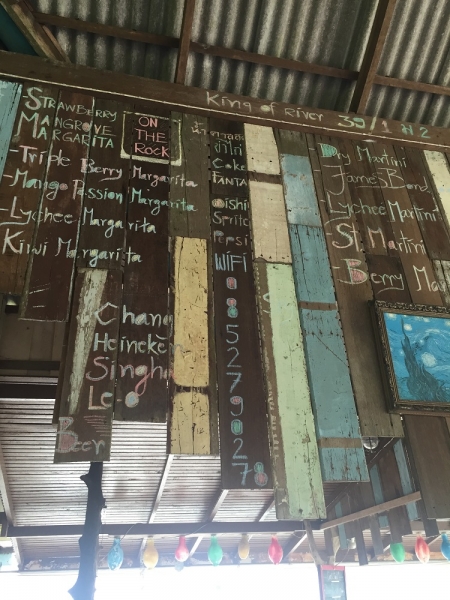 King of River 39/1 ม 2
Strawberry
Mangrove
Margarita
ON
THE
ROCK
-Triple Berry Margarita
-Mango Passion Margarita
-Lychee Margarita
Kiwi Margarita
Chang
Heineken
Singh
Leo
Beer
Coke
Fanta
Oishi
Sprite
Pepsi
WiFi
0
8
5
2
7
9
0
2
78
Dry Martini
-James Bond
-Lychee Martini
St. Martini
-Berry Ma